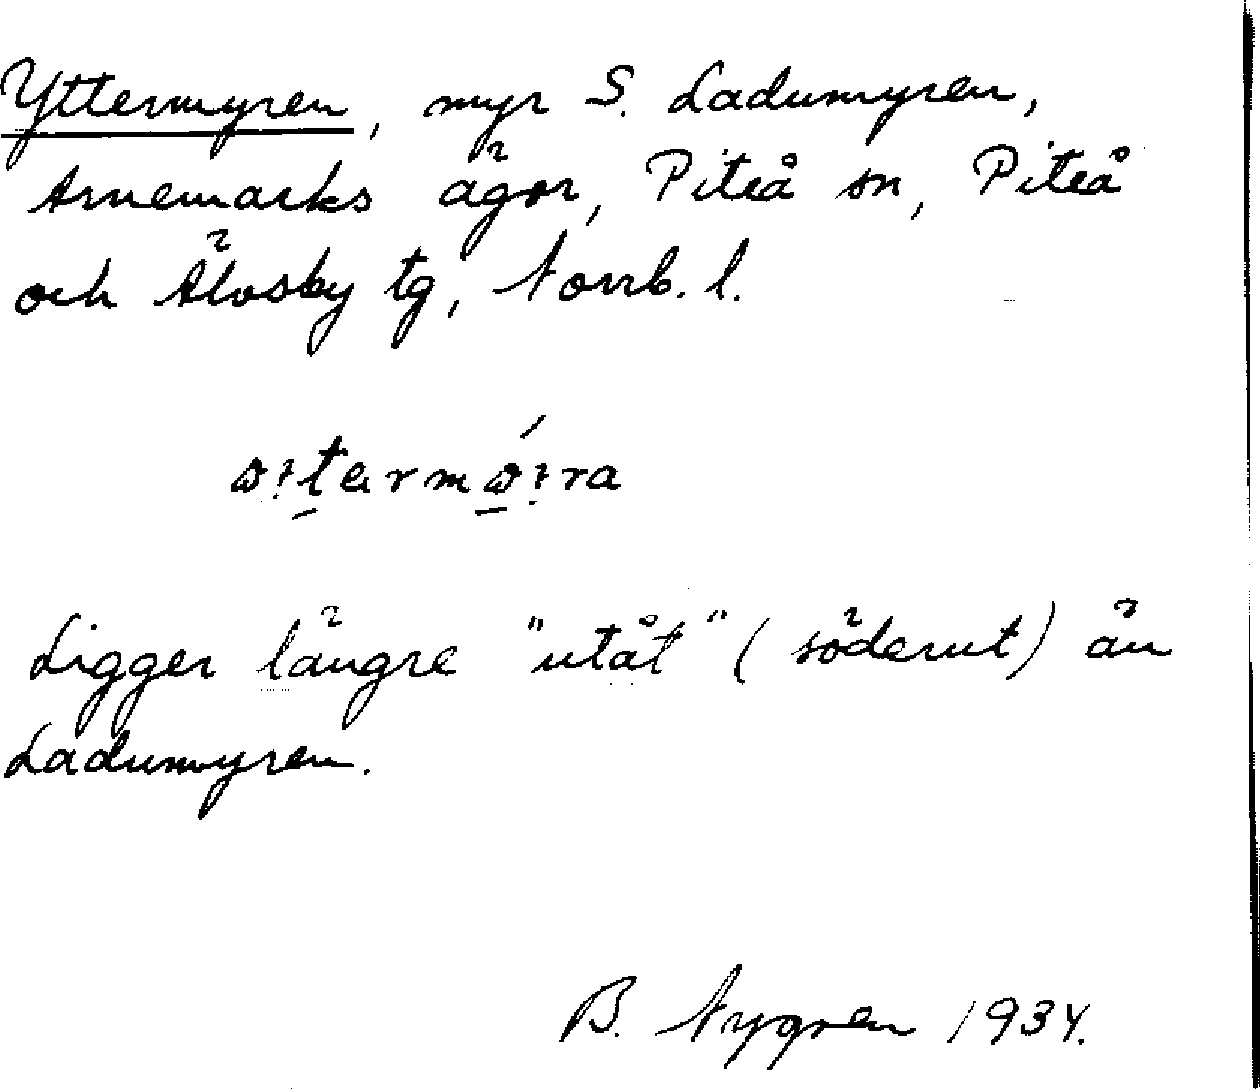 Yttermyren, myr S. Ladumyren,
Arnemarks ägor, Piteå sn, Piteå
och Älvsby tg, Norrb. l.
Ligger längre "utåt" (söderut) än
Ladumyren.
B. Nygren 1934.